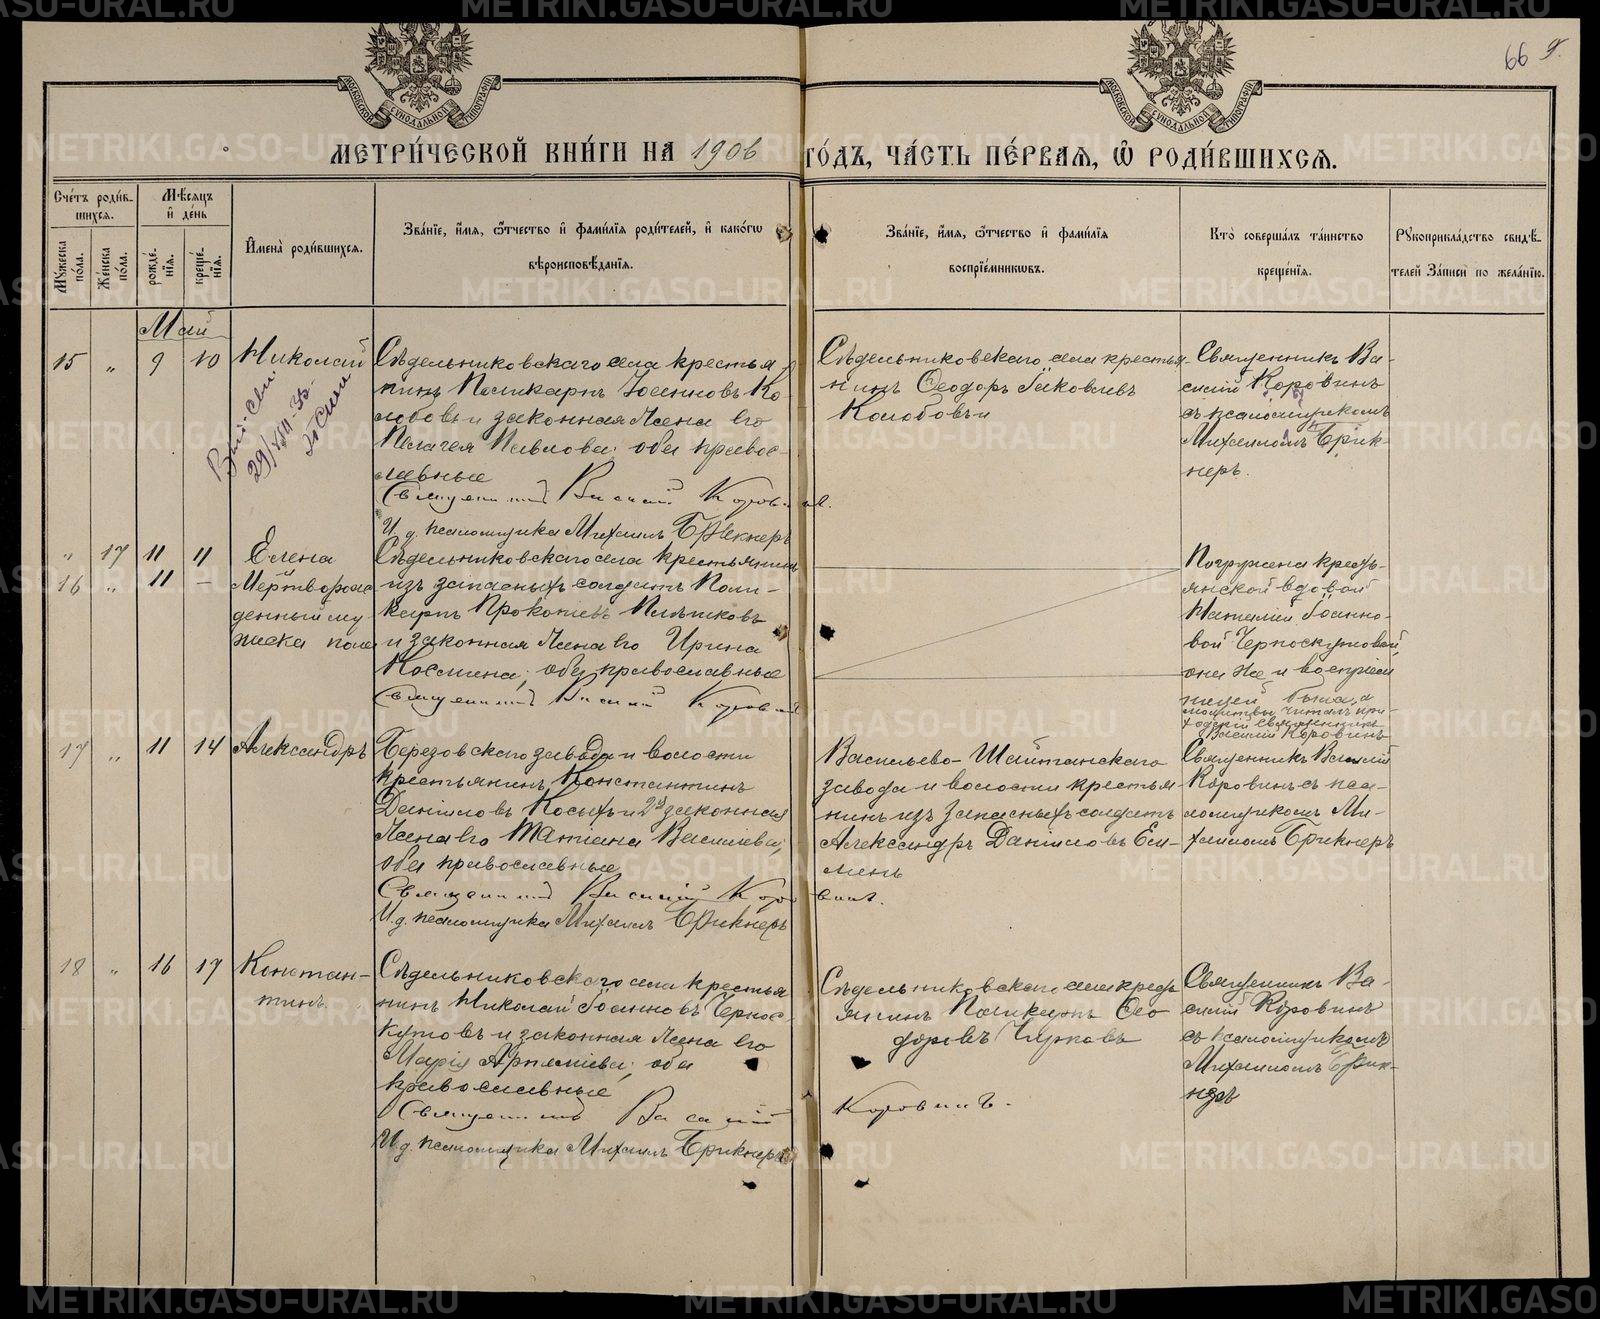 66
МЕТРИ́ЧЕСКОЙ КНИ́ГИ НА 1906 ГО́ДЪ, ЧА́СТЬ ПЕ́РВАѦ, Ѡ҆ РОДИ́ВШИХСѦ.
Сче́тъ роди́в-
шихсѧ.
Мѣ́сѧцъ
и҆ де́нь
Мꙋ́жеска по́ла.
Же́нска по́ла.
рожде́-
нїѧ.
креще́-
нїѧ.
И҆мена̀ роди́вшихсѧ.
Зва́нїе, и҆́мѧ, ѻ҆́тчество и҆ фами́лїѧ роди́телей, и҆ како́гѡ
вѣроисповѣ́данїѧ.
Зва́нїе, и҆́мѧ, ѻ҆́тчество и҆ фами́лїѧ
воспрїе́мникѡвъ.
Кто̀ соверша́лъ та́инство
креще́нїѧ.
Рꙋкоприкла́дство свидѣ́-
телей За́писи по жела́нїю.
Май
15 „ 9 10 Николай
Сѣдельниковскаго села крестья-
нинъ Поликарпъ Іоанновъ Ко-
лобовъ и законная жена его
Пелагея Павлова; оба правос-
лавные
Священникъ Василій Коровинъ.
И. д. псаломщика Михаилъ Брикнеръ
Сѣдельниковскаго села крестья-
нинъ Ѳеодоръ Іаковлевъ
Колобовъ
Священникъ Ва-
силій Коровинъ
съ псаломщикомъ
Михаиломъ Брик-
неръ.
„ 17 11 11 Елена
16 „ 11 — Мертворож-
денный му-
жеска пола
Сѣдельниковскаго села крестьянинъ
изъ запасныхъ солдатъ Поли-
карпъ Прокопьевъ Пилѣтиковъ
и законная жена его Ирина
Космина; оба православные
Священникъ Василій Коровинъ
Погружена кресть-
янской вдовой
Наталіей Іоанно-
вой Черноскутовой,
она же и воспріем-
ницей была, а
молитвы читалъ при-
ходскій священникъ
Василій Коровинъ
17 „ 11 14 Александръ
Березовскаго завода и волости
крестьянинъ Константинъ
Даніиловъ Косыхъ и законная
жена его Татіана Василіева;
оба православные
Священникъ Василій Коровинъ.
И. д. псаломщика Михаилъ Брикнеръ
Васильево-Шайтанскаго
завода и волости крестья-
нинъ изъ запасныхъ солдатъ
Александръ Даніиловъ
Священникъ Василій
Коровинъ съ пса-
ломщикомъ Ми-
хаиломъ Брикнеръ
18 „ 16 17 Констан-
тинъ
Сѣдельниковскаго села крестья-
нинъ Николай Іоанновъ Чернос-
кутовъ и законная жена его
Марія Артеміева; оба
православные
Священникъ Василій Коровинъ.
И. д. псаломщика Михаилъ Брикнеръ
Сѣдельниковскаго села кресть-
янинъ Поликарпъ Ѳео-
доровъ Чирковъ
Священникъ Ва-
силій Коровинъ
съ псаломщикомъ
Михаиломъ Брик-
неръ
METRIKI.GASO-URAL.RU